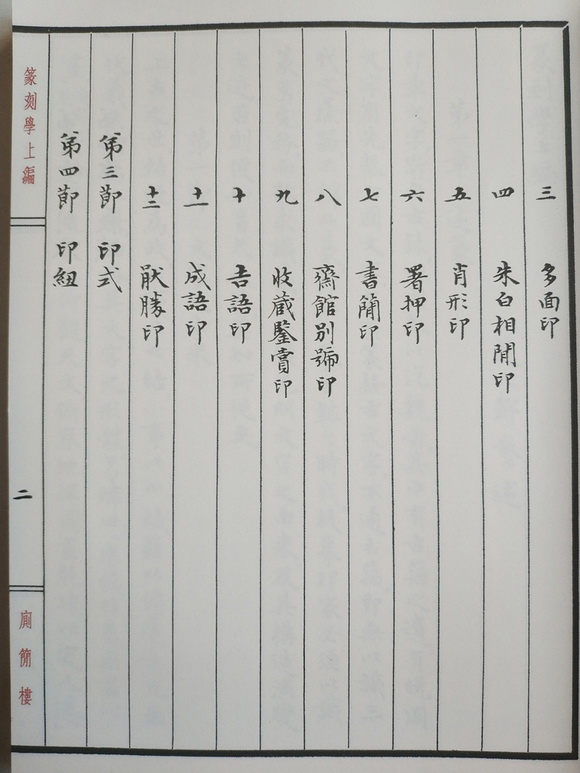 三 多面印
四 朱白相閒印
五 肖形印
六 署押印
七 書簡印
八 齋館別號印
九 收藏鑒賞印
十 吉語印
十一 成語印
十二 猒勝印
第三節 印式
第四節 印紐
篆刻學上編
二
廁簡樓